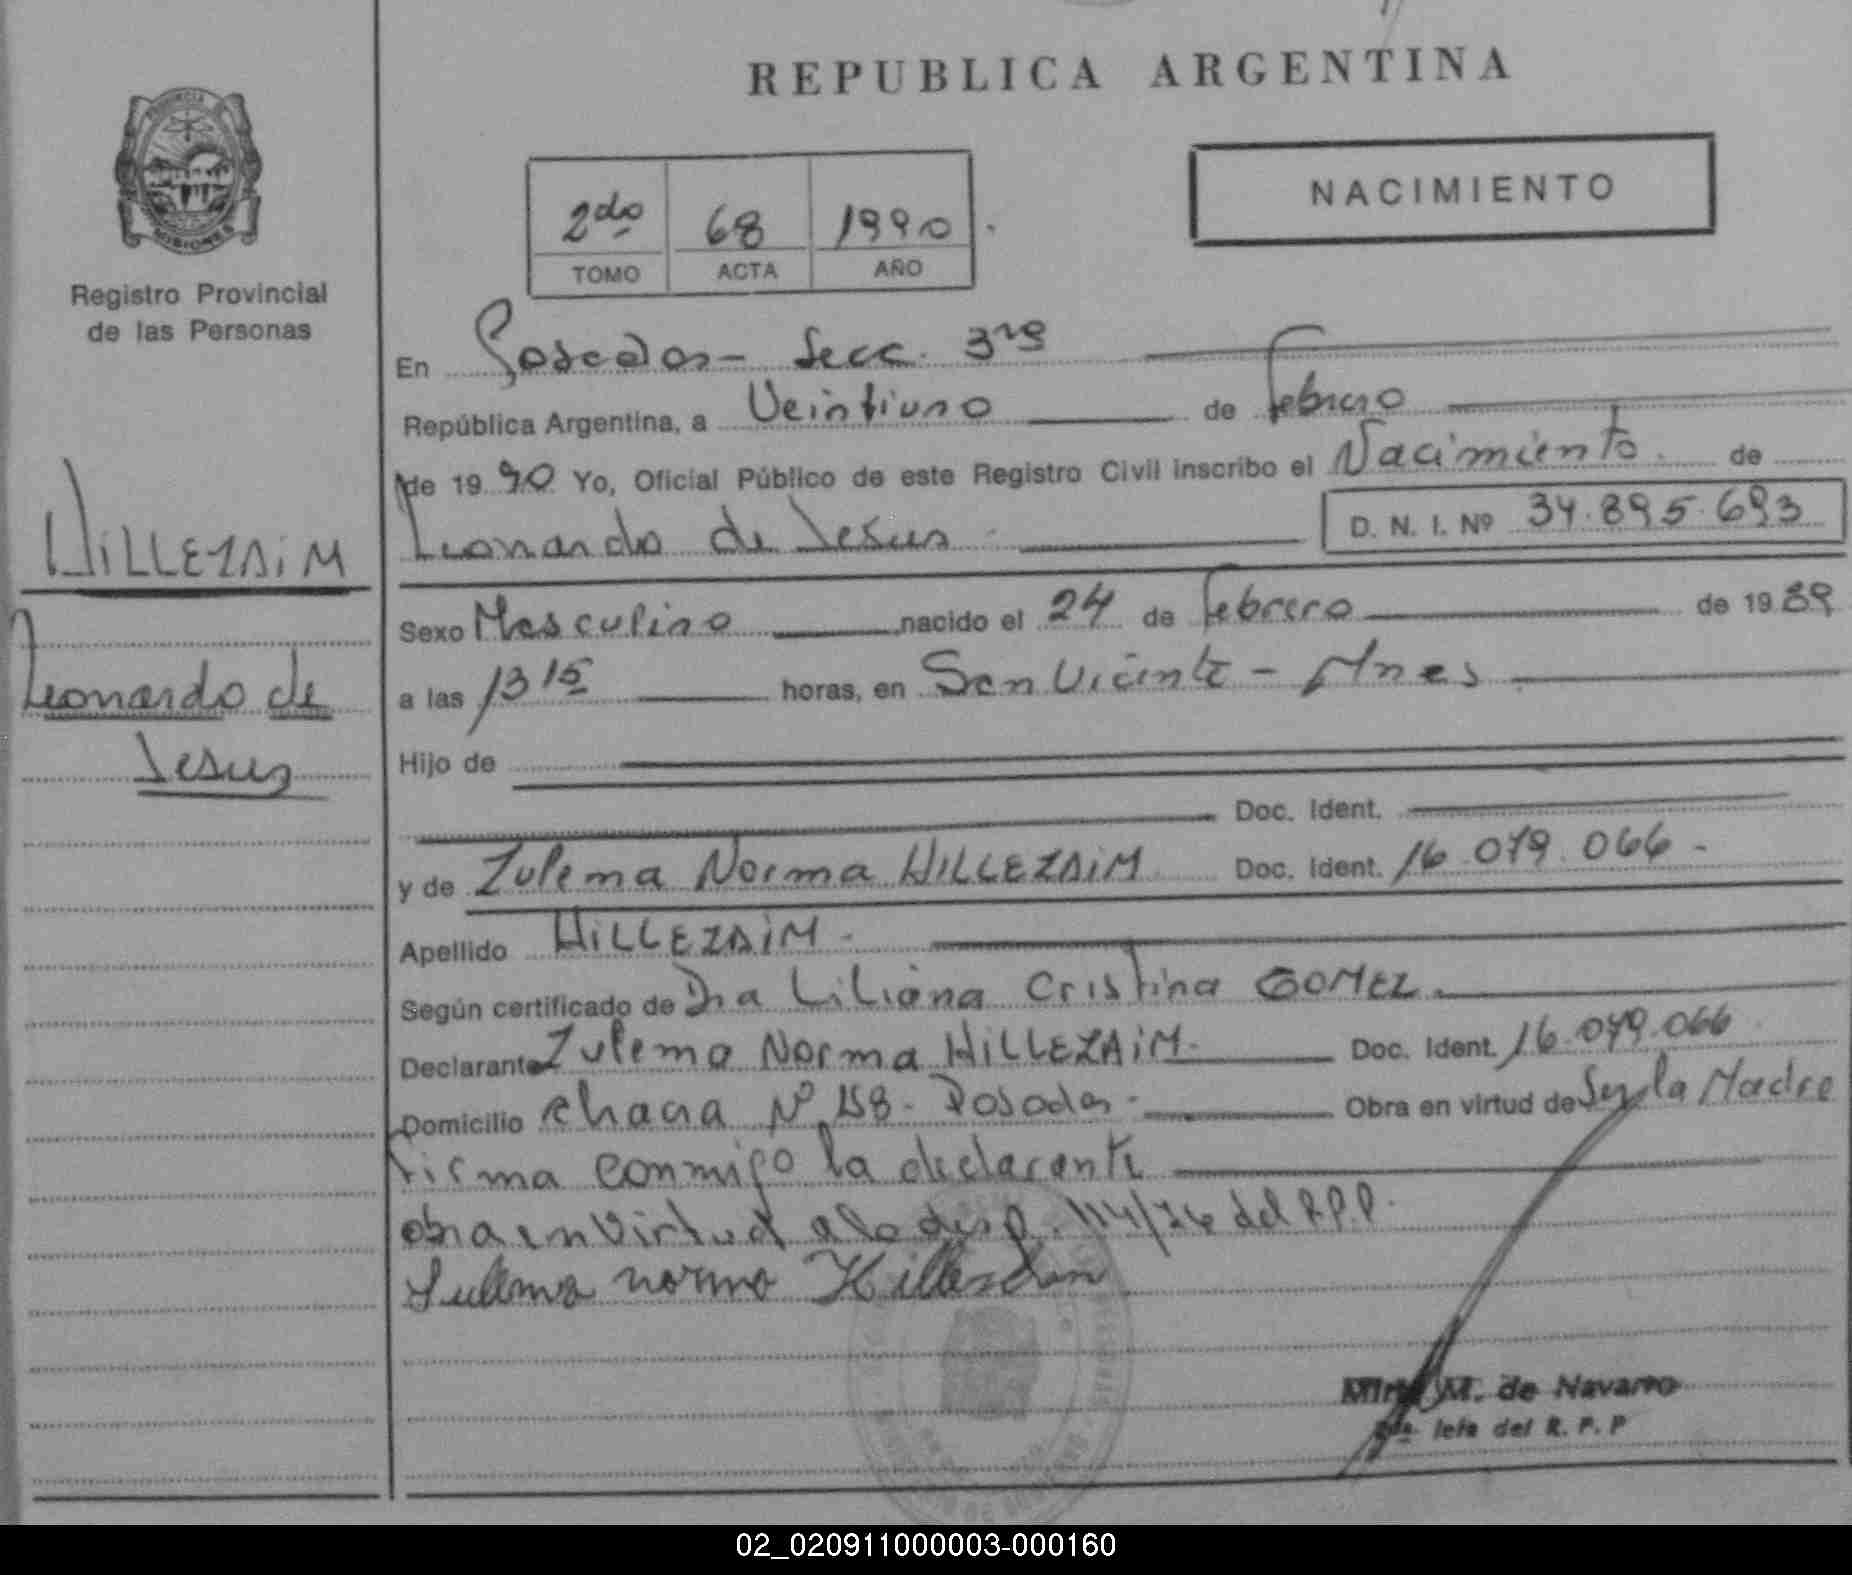 REPUBLICA ARGENTINA
NACIMIENTO
2do 68 1990
TOMO ACTA AÑO
PROVINCIA
MISIONES
Registro Provincial
de las Personas
HiLLEZAiM
Leonardo de
Jesus
En Posadas - Secc. 3ra
República Argentina, a Veintiuno de Febrero
de 1990 Yo, Oficial Público de este Registro Civil inscribo el Nacimiento. de
Leonardo de Jesus D. N. I. Nº 34.895.693
Sexo Masculino nacido el 24 de Febrero de 1989
a las 13 15 horas, en San Vicente - Mnes
Hijo de
Doc. Ident.
y de Zulema Norma HiLLEZAiM Doc. Ident. 16.079.066 -
Apellido HiLLEZAiM -
Según certificado de Dra LiLiana Cristina GOMEZ.
Declarante Zulema Norma HiLLEZAiM. Doc. Ident. 16.079.066
Domicilio Chacra Nº 158 - Posadas - Obra en virtud de Ser la Madre
Firma conmigo la declarante
obra en virtud a la disp. 114/76 del R.P.P.
Sulema norma
M. de Navarro
Jefa del R. P. P
02_020911000003-000160